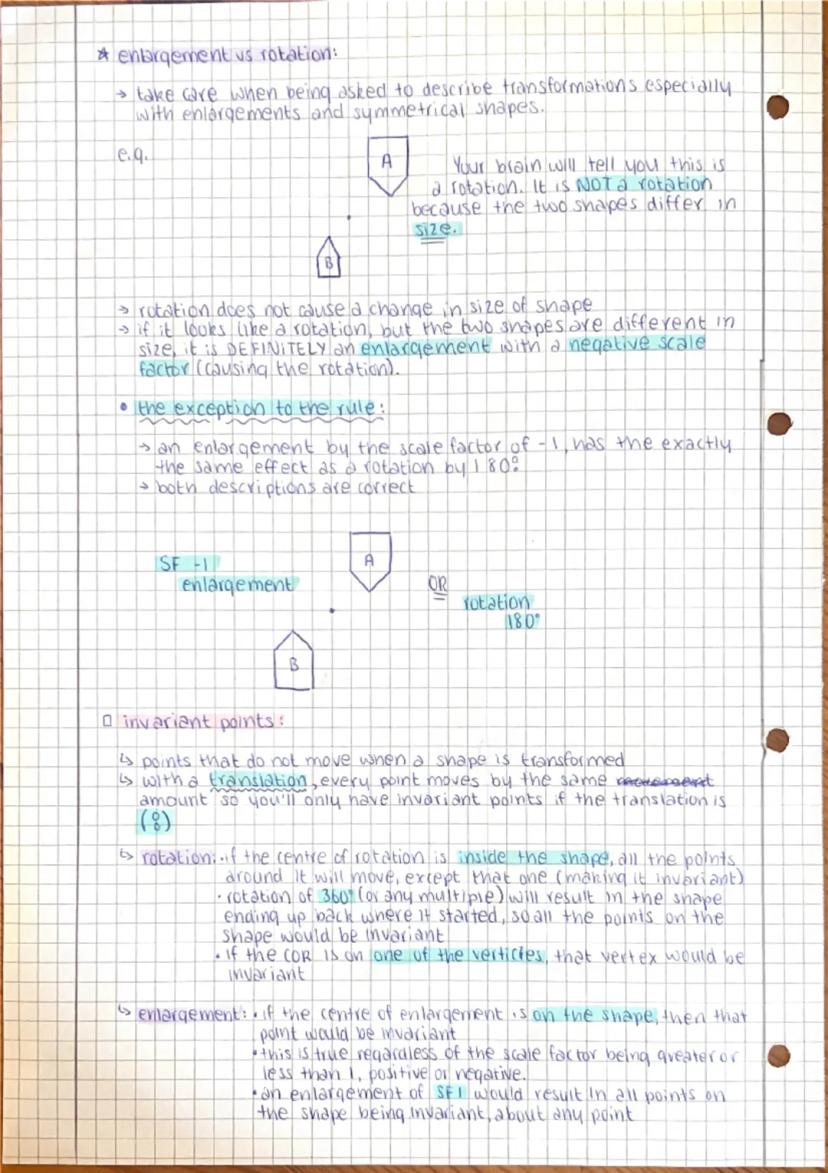 * enlargement vs rotation:
→ take care when being asked to describe transformations especially
with enlargements and symmetrical shapes.
e.g.
A
Your brain will tell you this is
a rotation. It is NOT a rotation
because the two shapes differ in
size.
B
→ rotation does not cause a change in size of shape
→ if it looks like a rotation, but the two shapes are different in
size, it is DEFINITELY an enlargement with a negative scale
factor (causing the rotation).
• the exception to the rule:
→ an enlargement by the scale factor of -1, has the exactly
the same effect as a rotation by 180°
→ both descriptions are correct
SF -1
enlargement
A
OR
rotation
180°
B
□ invariant points:
↳ points that do not move when a shape is transformed
↳ with a translation, every point moves by the same
amount so you'll only have invariant points if the translation is
(0 0)
↳ rotation: • if the centre of rotation is inside the shape, all the points
around it will move, except that one (making it invariant)
• rotation of 360° (or any multiple) will result in the shape
ending up back where it started, so all the points on the
shape would be invariant
• if the COR is on one of the verticies, that vertex would be
invariant
↳ enlargement: • if the centre of enlargement is on the shape, then that
point would be invariant
• this is true regardless of the scale factor being greater or
less than 1, positive or negative.
• an enlargement of SF1 would result in all points on
the shape being invariant, about any point